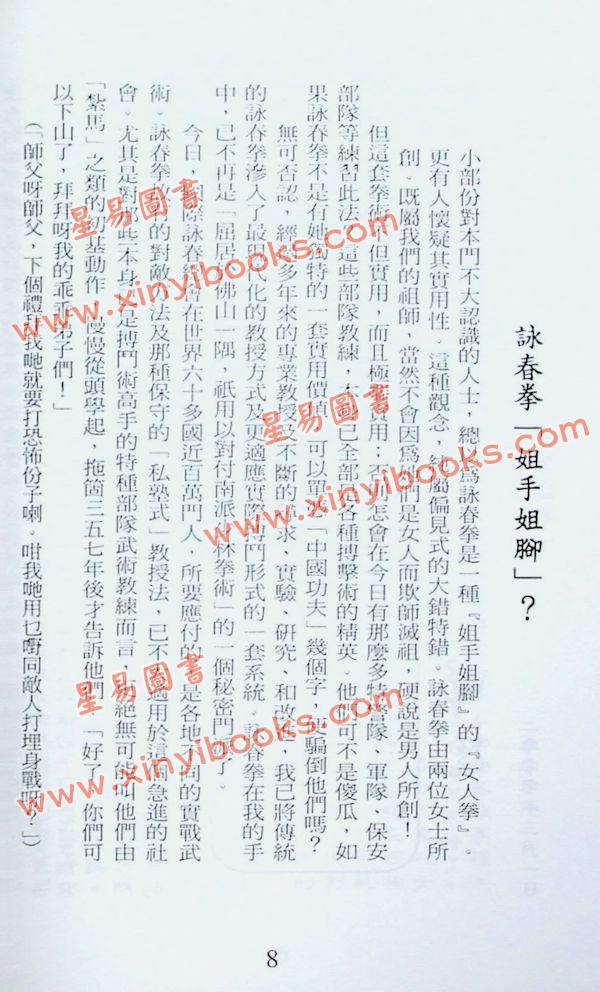 詠春拳「姐手姐腳」?
小部份對本門不大認識的人士,總以為詠春拳是一種『姐手姐腳』的『女人拳』。
更有人懷疑其實用性。這種觀念,純屬偏見式的大錯特錯。詠春拳由兩位女士所
創。既屬我們的祖師,當然不會因為她們是女人而欺師滅祖,硬說是男人所創!
但這套拳術不但實用,而且極實用;否則怎會在今日有那麼多特警隊、軍隊、保安
部隊等練習此法?這些部隊教練,本已全部各種搏擊術的精英。他們可不是傻瓜,如
果詠春拳不是有她獨特的一套實用價值,可以單憑「中國功夫」幾個字,便騙倒他們嗎?
無可否認,經過多年來的專業教授及不斷的求、實驗、研究、和改進,我已將傳統
的詠春拳滲入了最現代化的教授方式及更適應實際搏鬥形式的一套系統。詠春拳在我的手
中,已不再是「屈居佛山一隅,祇用以對付南派少林拳術」的一個秘密門派了。
今日,國際詠春總會在世界六十多國近百萬門人,所要應付的是各地不同的實戰武
術。詠春拳的對敵方法及那種保守的「私塾式」教授法,已不適用於這個急進的社
會。尤其是對那些本身是搏鬥術高手的特種部隊武術教練而言,絕無可能叫他們由
「紮馬」之類的初基動作,慢慢從頭學起,拖箇三五七年後才告訴他們:「好了,你們可
以下山了,拜拜呀我的乖乖弟子們!」
(「師父呀師父,下個禮拜我哋就要打恐怖份子喇。咁我哋用乜嘢同敵人打埋身戰呀?」)
8
星易圖書
www.xinyibooks.com
星易圖書
www.xinyibooks.com
星易圖書
www.xinyibooks.com